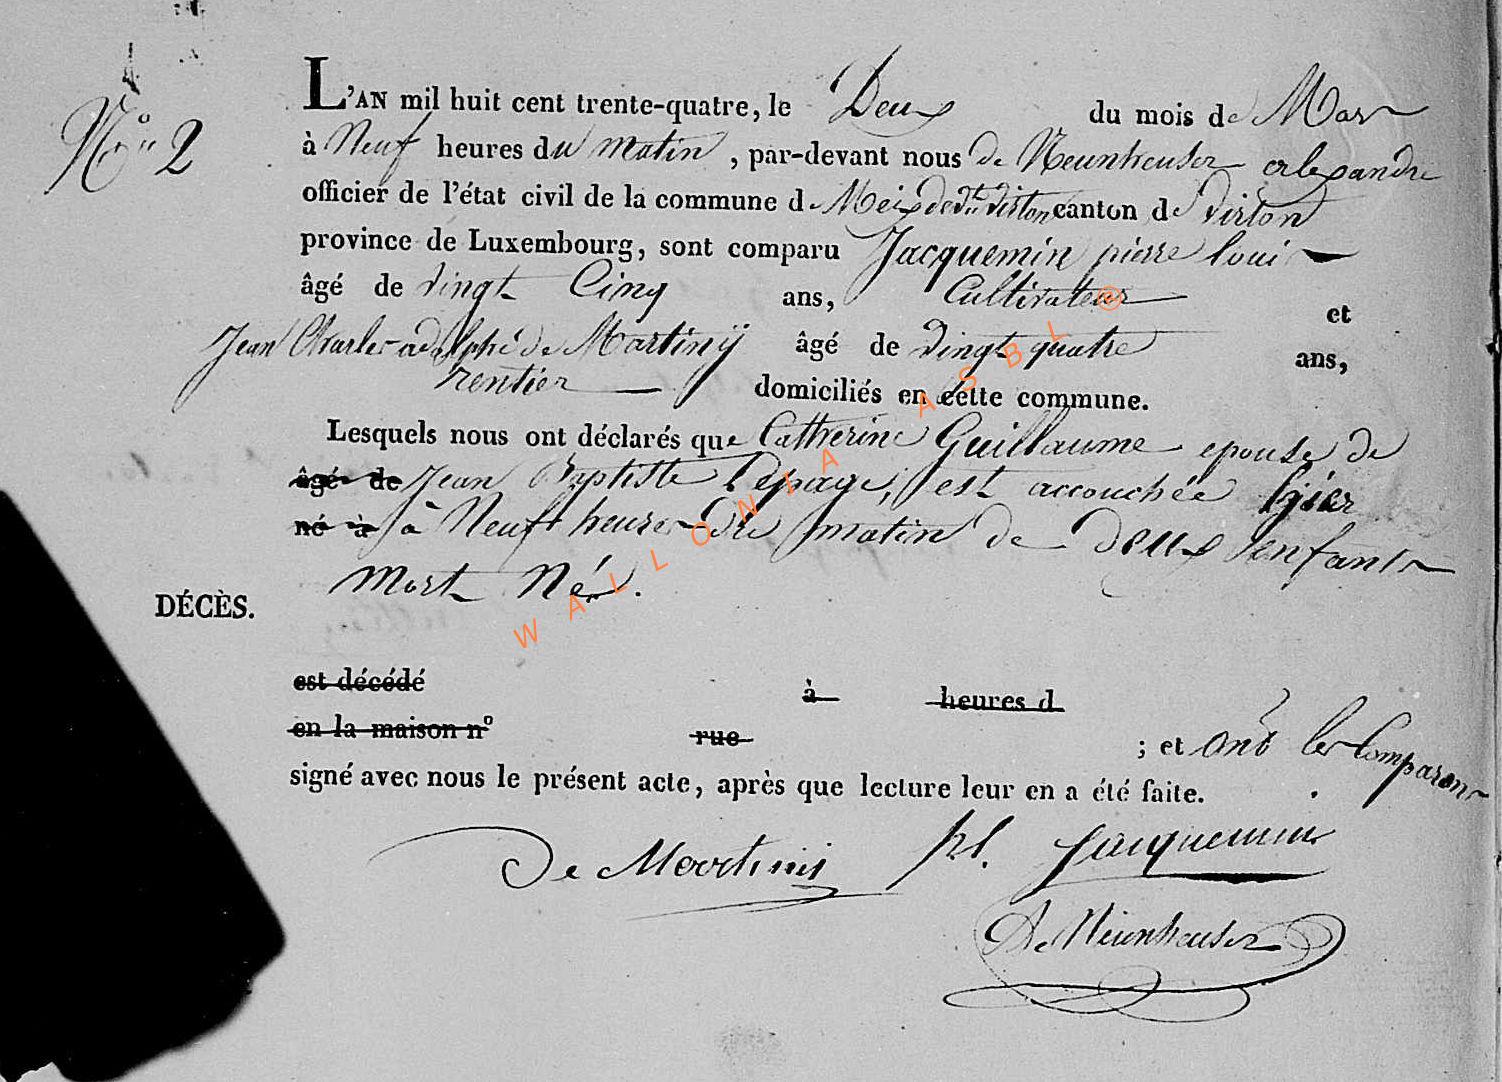 N° 2
L'AN mil huit cent trente-quatre, le Deux du mois de Mars
à Neuf heures du matin, par-devant nous de Neunheuser alexandre
officier de l'état civil de la commune de Meix devt Virton canton de Virton
province de Luxembourg, sont comparu Jacquemin pierre loui
âgé de vingt Cinq ans, Cultivateur et
Jean Charles adolphe de Martiny âgé de vingt quatre ans,
rentier domiciliés en cette commune.
Lesquels nous ont déclarés que Catherine Guillaume epouse de
âgé de Jean Baptiste Lepage, est accouchée hjier
né à à Neuf heures du matin de deux enfants
mort Né.
DÉCÈS.
est décédé à heures d
en la maison n° rue ; et ont les Comparans
signé avec nous le présent acte, après que lecture leur en a été faite.
De Martini pl. Jacquemin
De Neunheuser
WALLONIA ASBL ®